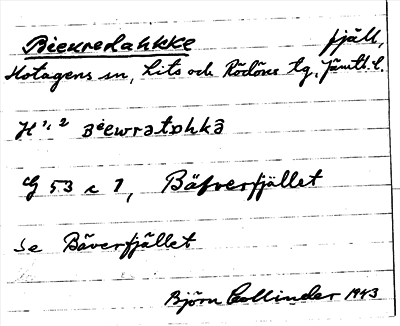 Bieuredahkke fjäll,
Hotagens sn, Lits och Rödöns tg, Jämtl. l.
H 1, 2 Bieuuratɒhkă
G 53 c 1, Bäfverfjället
Se Bäverfjället
Björn Collinder 1943